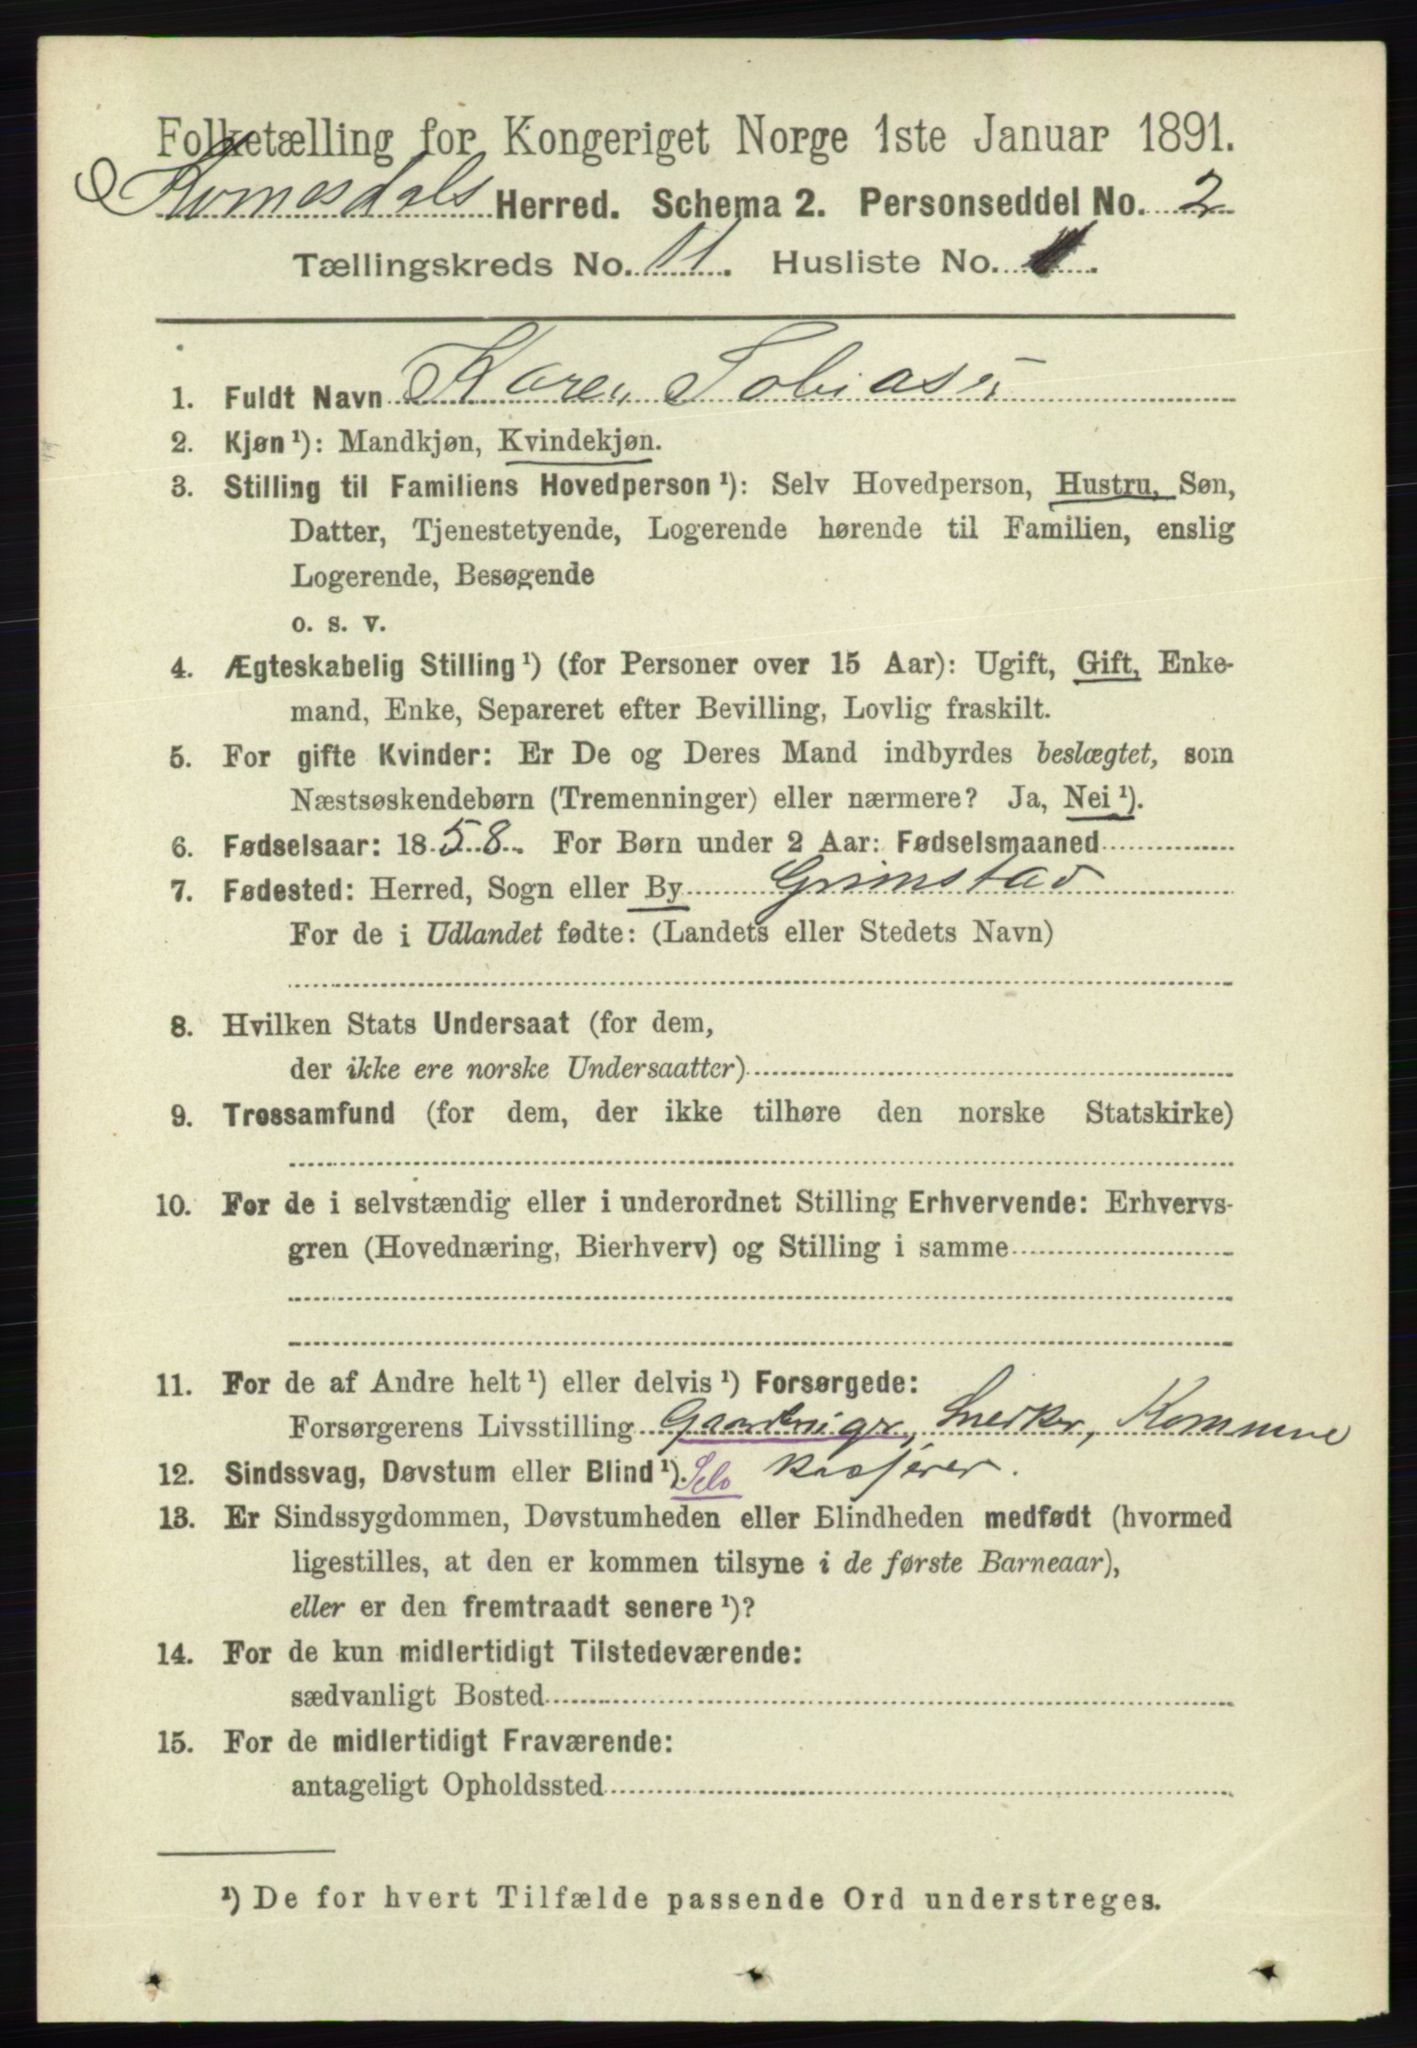 Folketælling for Kongeriget Norge 1ste Januar 1891.
Herred. Schema 2. Personseddel No. 2
Tællingskreds No. 11. Husliste No.
1. Fuldt Navn Karen Tobiasen
2. Kjøn¹): Mandkjøn, Kvindekjøn.
3. Stilling til Familiens Hovedperson¹): Selv Hovedperson, Hustru, Søn,
Datter, Tjenestetyende, Logerende hørende til Familien, enslig
Logerende, Besøgende
o. s. v.
4. Ægteskabelig Stilling¹) (for Personer over 15 Aar): Ugift, Gift, Enke-
mand, Enke, Separeret efter Bevilling, Lovlig fraskilt.
5. For gifte Kvinder: Er De og Deres Mand indbyrdes beslægtet, som
Næstsøskendebørn (Tremenninger) eller nærmere? Ja, Nei¹).
6. Fødselsaar: 1858. For Børn under 2 Aar: Fødselsmaaned
7. Fødested: Herred, Sogn eller By Grimstad
For de i Udlandet fødte: (Landets eller Stedets Navn)
8. Hvilken Stats Undersaat (for dem,
der ikke ere norske Undersaatter)
9. Trossamfund (for dem, der ikke tilhøre den norske Statskirke)
10. For de i selvstændig eller i underordnet Stilling Erhvervende: Erhvervs-
gren (Hovednæring, Bierhverv) og Stilling i samme
11. For de af Andre helt¹) eller delvis¹) Forsørgede:
Forsørgerens Livsstilling Gaardbruger, Snedker, Kommune
12. Sindssvag, Døvstum eller Blind¹). Selv kasserer.
13. Er Sindssygdommen, Døvstumheden eller Blindheden medfødt (hvormed
ligestilles, at den er kommen tilsyne i de første Barneaar),
eller er den fremtraadt senere¹)?
14. For de kun midlertidigt Tilstedeværende:
sædvanligt Bosted
15. For de midlertidigt Fraværende:
antageligt Opholdssted
¹) De for hvert Tilfælde passende Ord understreges.